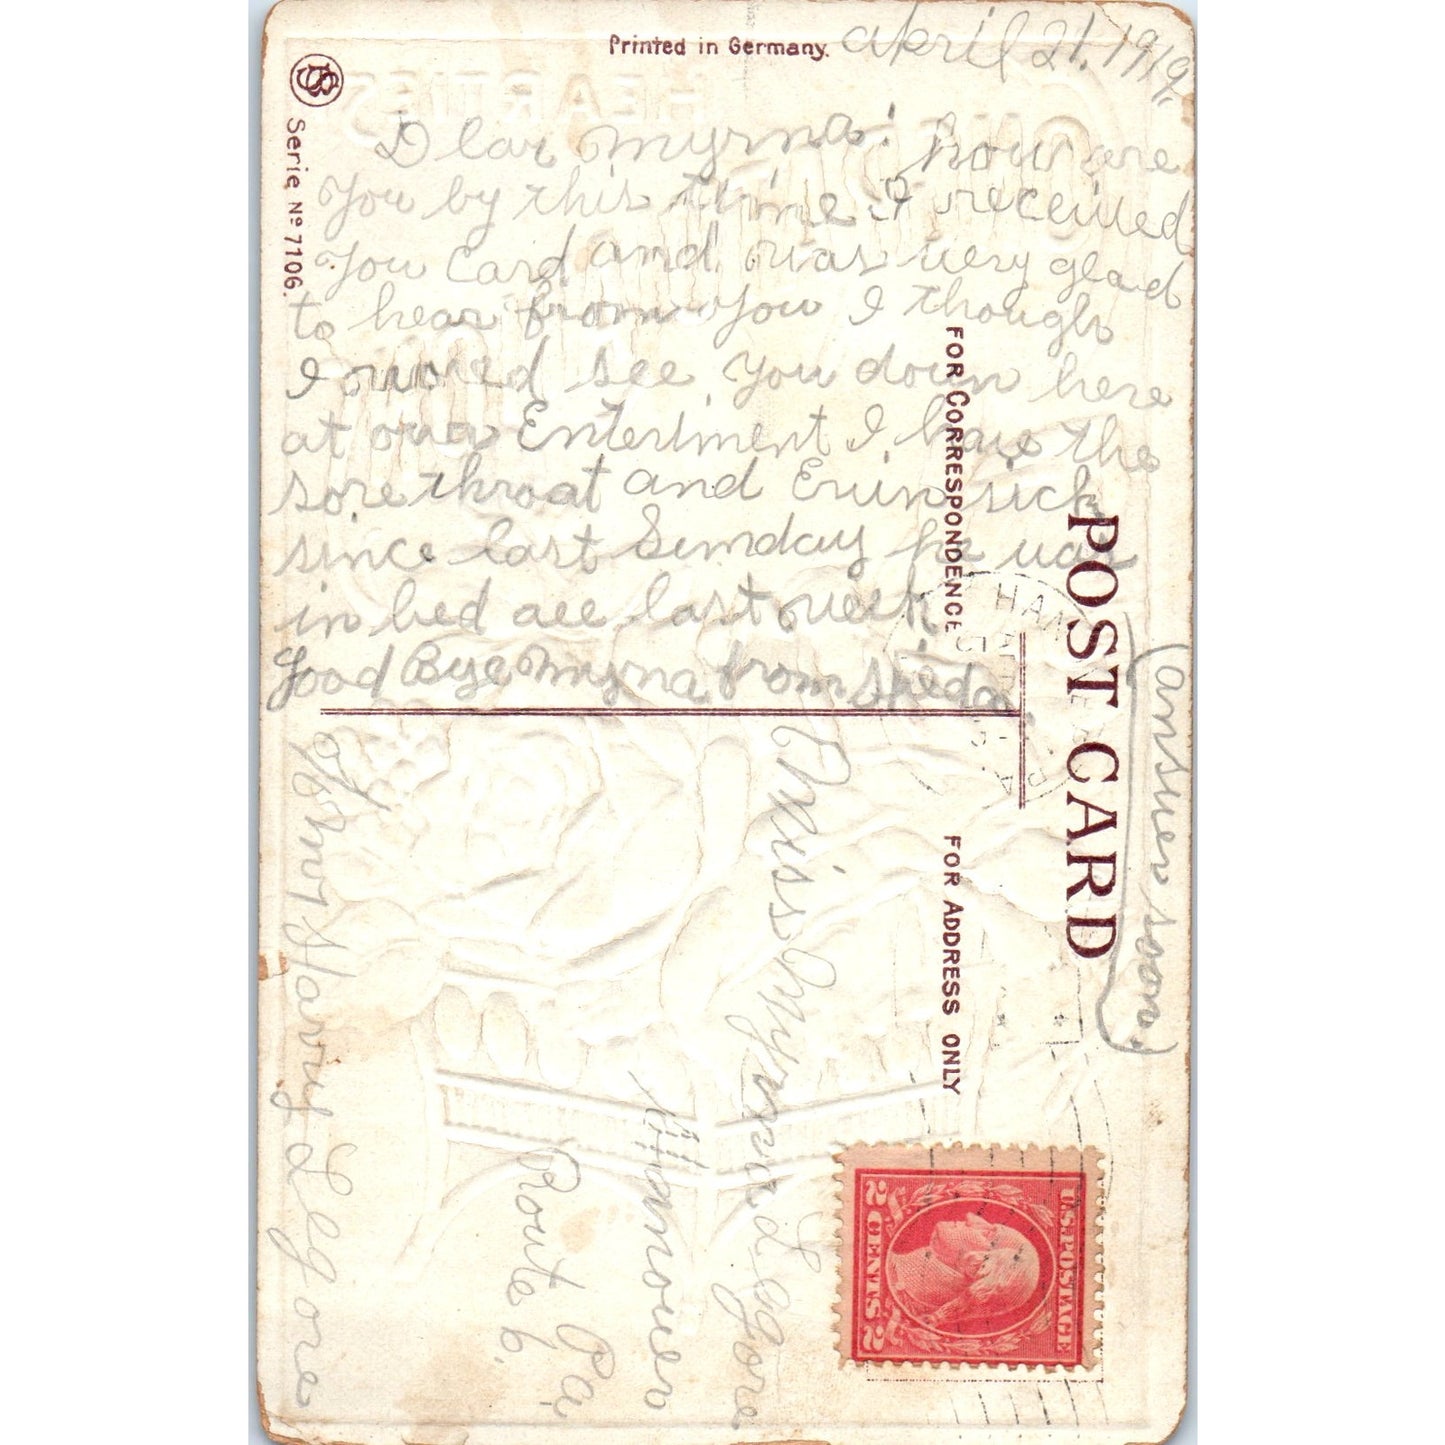 Printed in Germany.
april 21, 1919.
Serie No 7106.
Dear Myrna! how are
you by this time I received
you card and was very glad
to hear from you I though
I would see you down here
at our Entertiment I have the
sore throat and Ervin sick
since last Sunday he was
in bed all last week
Good Bye Myrna from
(answer soon.)
POST CARD
FOR CORRESPONDENCE
FOR ADDRESS ONLY
HANOVER
PA.
U.S. POSTAGE
2 CENTS 2
Miss Myrna Legore
Hanover
Pa.
Route 6.
Harvy Legore